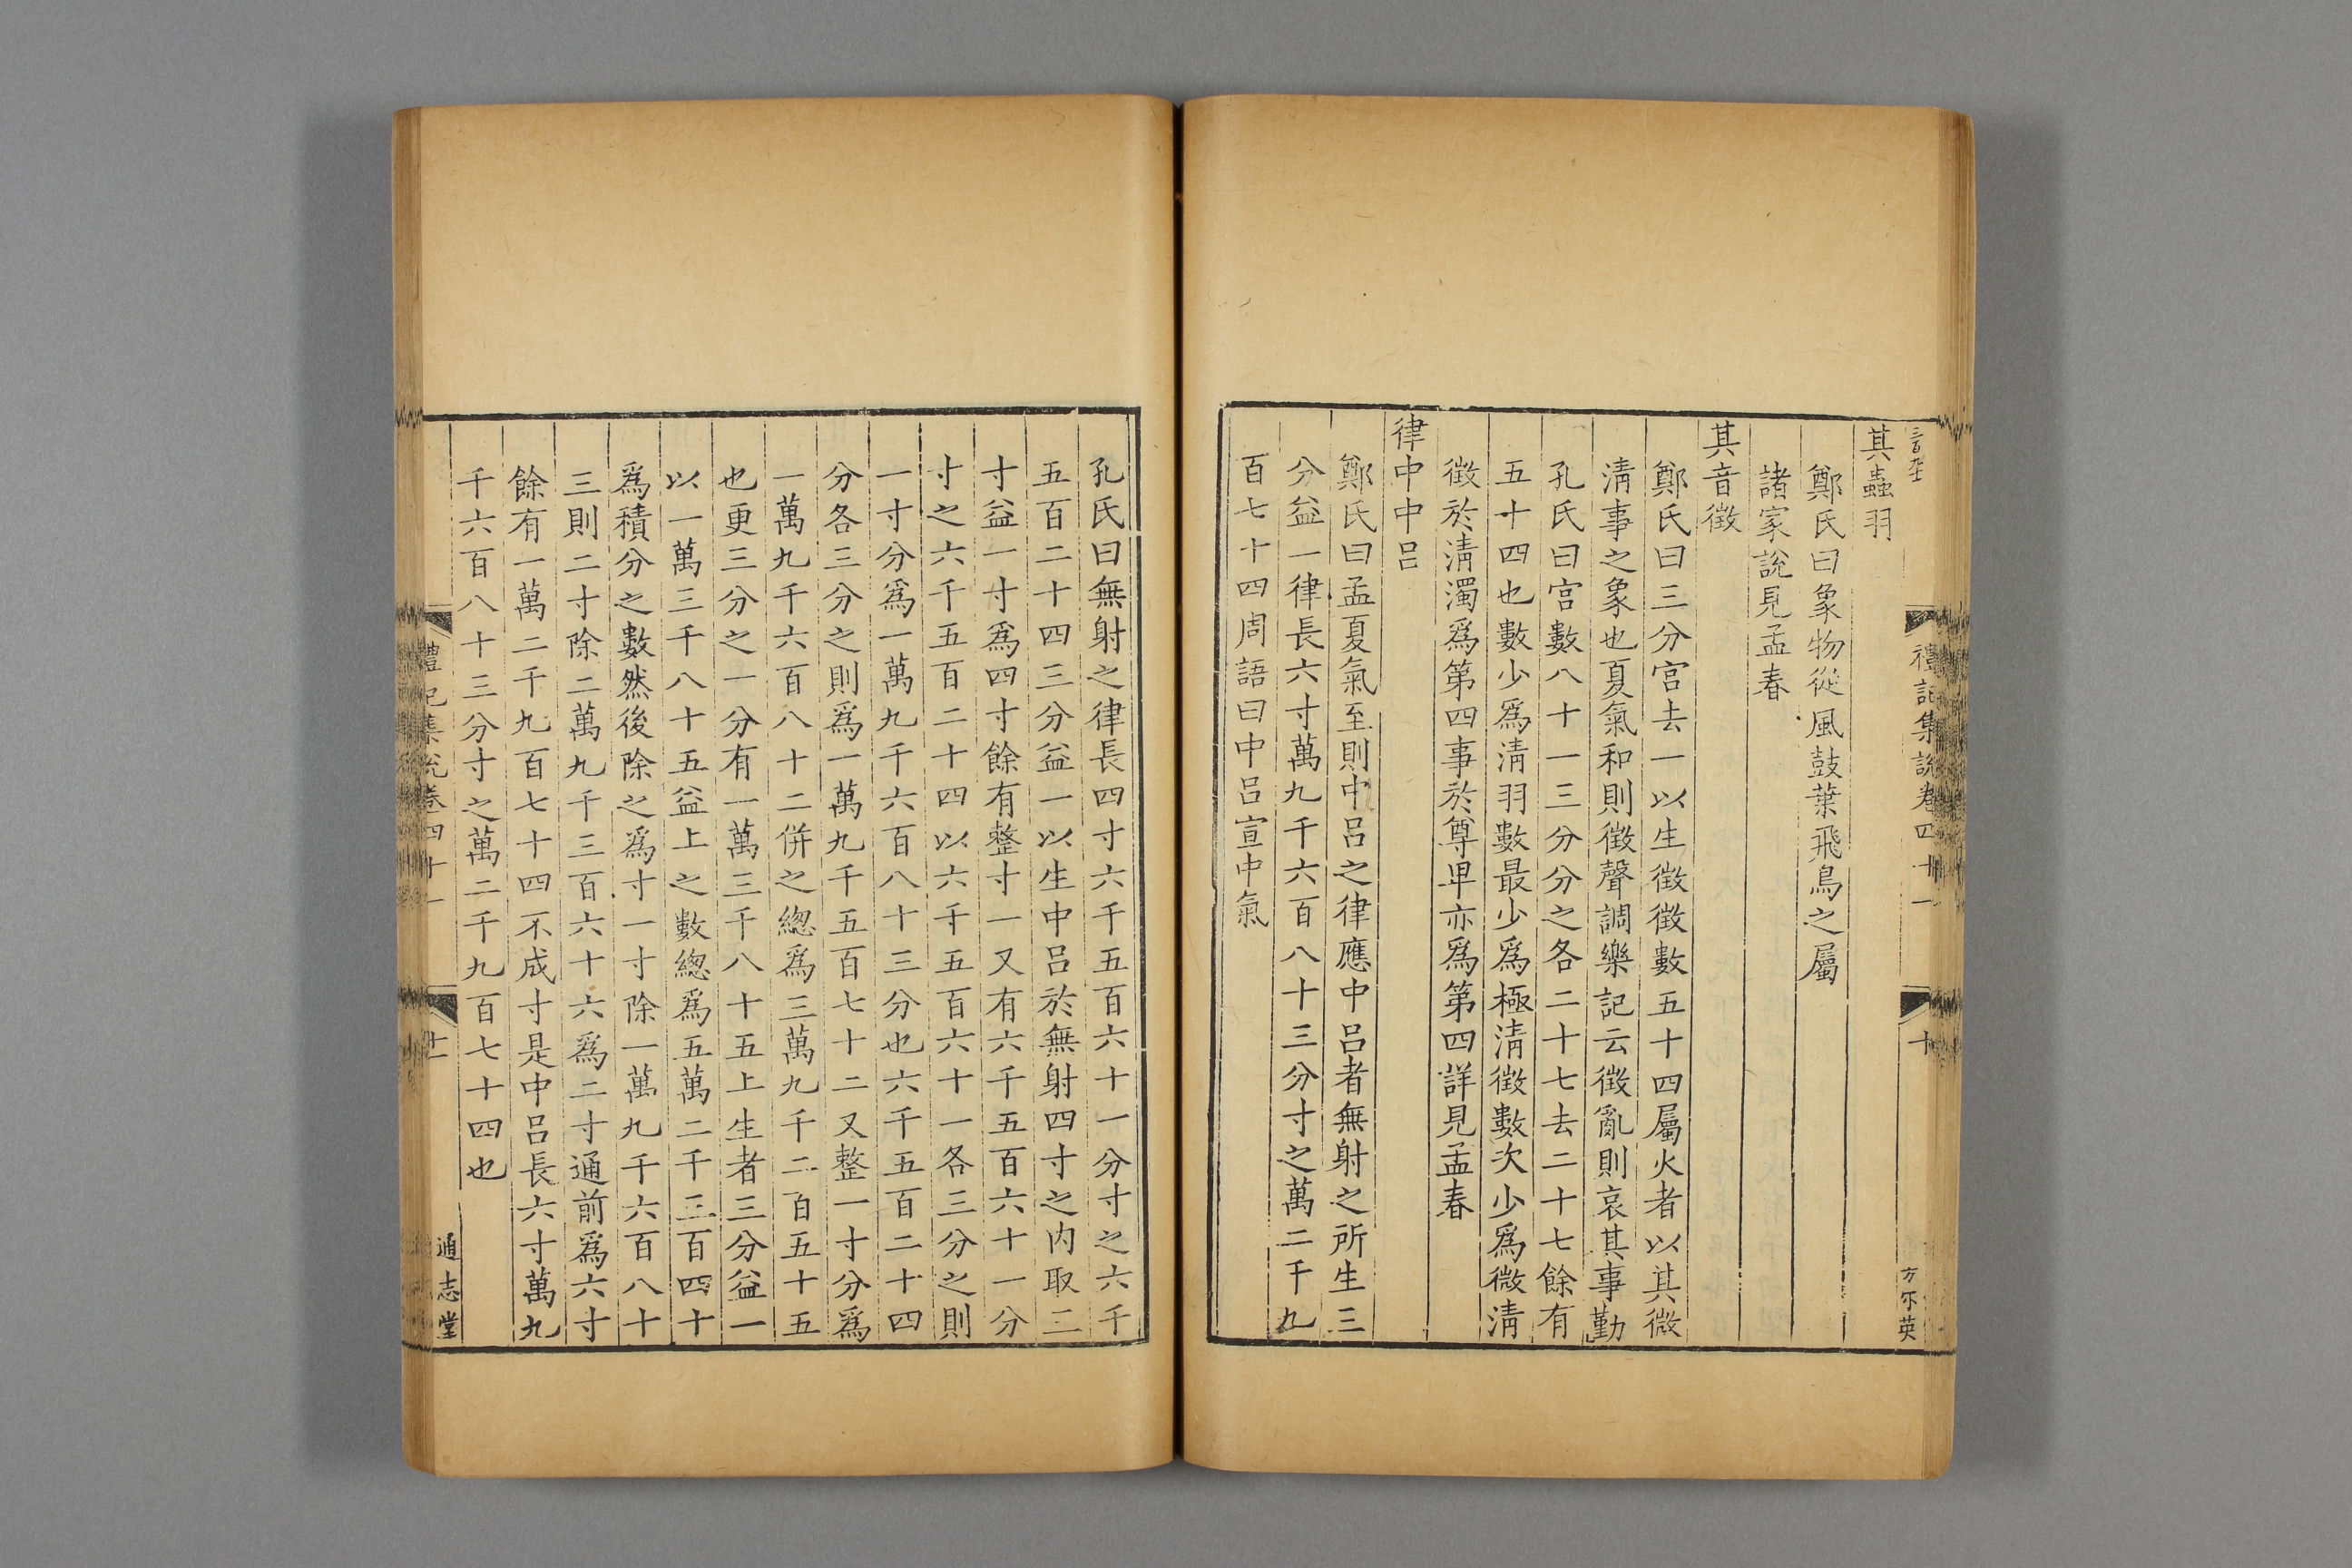 其蟲羽
鄭氏曰象物從風鼓葉飛鳥之屬
諸家說見孟春
其音徴
鄭氏曰三分宫去一以生徴徴數五十四屬火者以其微
淸事之象也夏氣和則徴聲調樂記云徴亂則哀其事勤
孔氏曰宫數八十一三分分之各二十七去二十七餘有
五十四也數少爲淸羽數最少爲極淸徴數次少爲微淸
徴於淸濁爲第四事於尊卑亦爲第四詳見孟春
律中中呂
鄭氏曰孟夏氣至則中呂之律應中呂者無射之所生三
分益一律長六寸萬九千六百八十三分寸之萬二千九
百七十四周語曰中呂宣中氣
禮記集説卷四十一
十
方尔英
孔氏曰無射之律長四寸六千五百六十一分寸之六千
五百二十四三分益一以生中呂於無射四寸之内取三
寸益一寸爲四寸餘有整寸一又有六千五百六十一分
寸之六千五百二十四以六千五百六十一各三分之則
一寸分爲一萬九千六百八十三分也六千五百二十四
分各三分之則爲一萬九千五百七十二又整一寸分爲
一萬九千六百八十二併之緫爲三萬九千二百五十五
也更三分之一分有一萬三千八十五上生者三分益一
以一萬三千八十五益上之數緫爲五萬二千三百四十
爲積分之數然後除之爲寸一寸除一萬九千六百八十
三則二寸除二萬九千三百六十六爲二寸通前爲六寸
餘有一萬二千九百七十四不成寸是中呂長六寸萬九
千六百八十三分寸之萬二千九百七十四也
禮記集説卷四十一
十一
通志堂